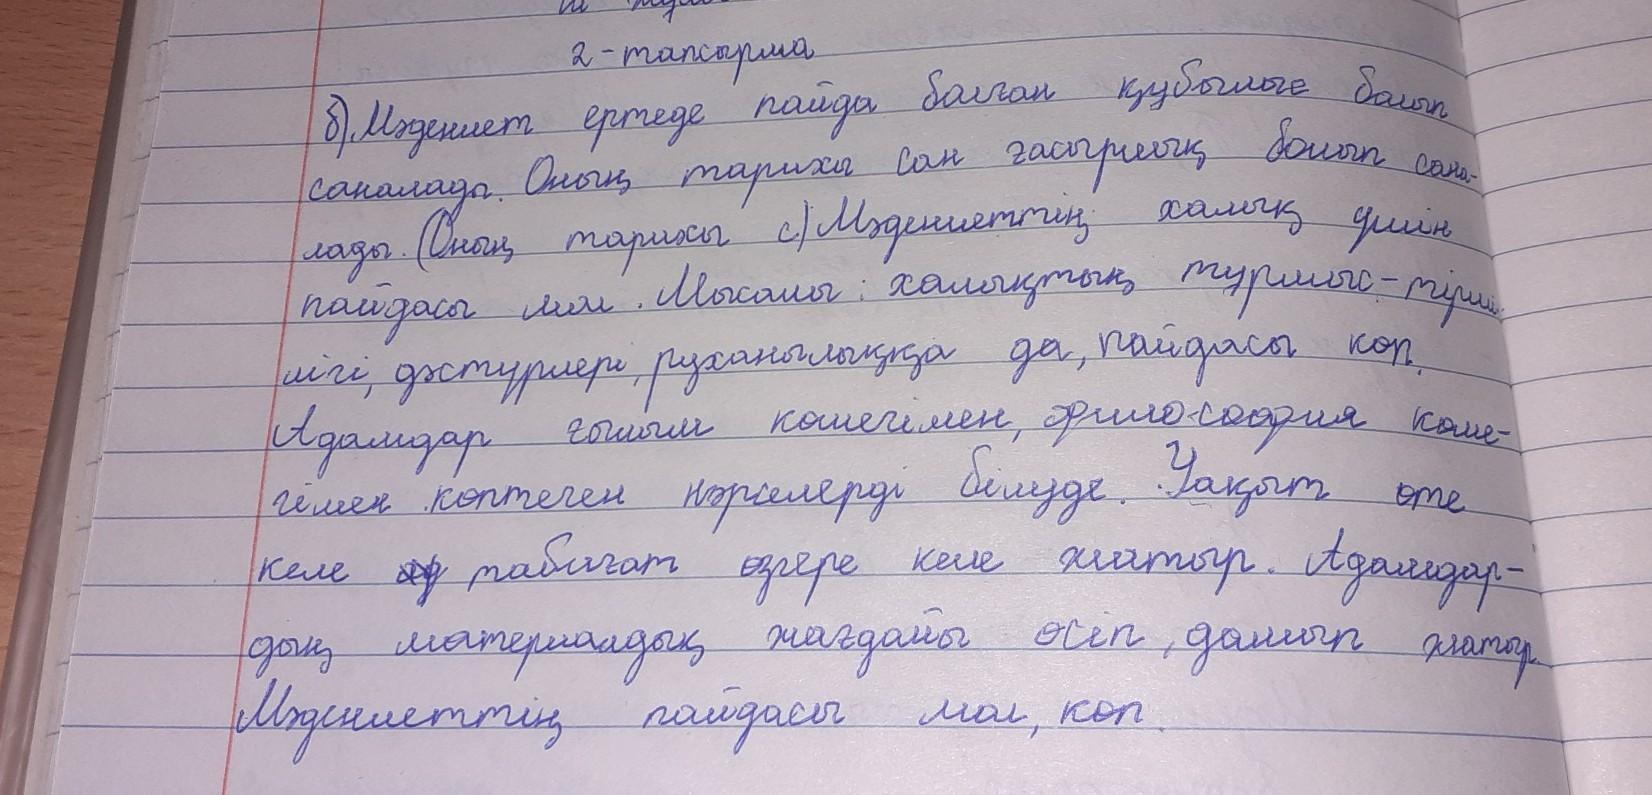 2-тапсырма
б) Мәдениет ертеде пайда болған құбылыс болып
саналады. Оның тарихы сан ғасырлық болып сана-
лады. (Оның тарихы с) Мәдениеттің халық үшін
пайдасы мол. Мысалы: халықтың тұрмыс-тірші
лігі, дәстүрлері, руханилыққа да, пайдасы көп.
Адамдар ғылым көмегімен, философия көме-
гімен көптеген нәрселерді білуде. Уақыт өте
келе табиғат өзгере келе жатыр. Адамдар-
дың материалдық жағдайы өсіп, дамып жатыр.
Мәдениеттің пайдасы мол, көп.